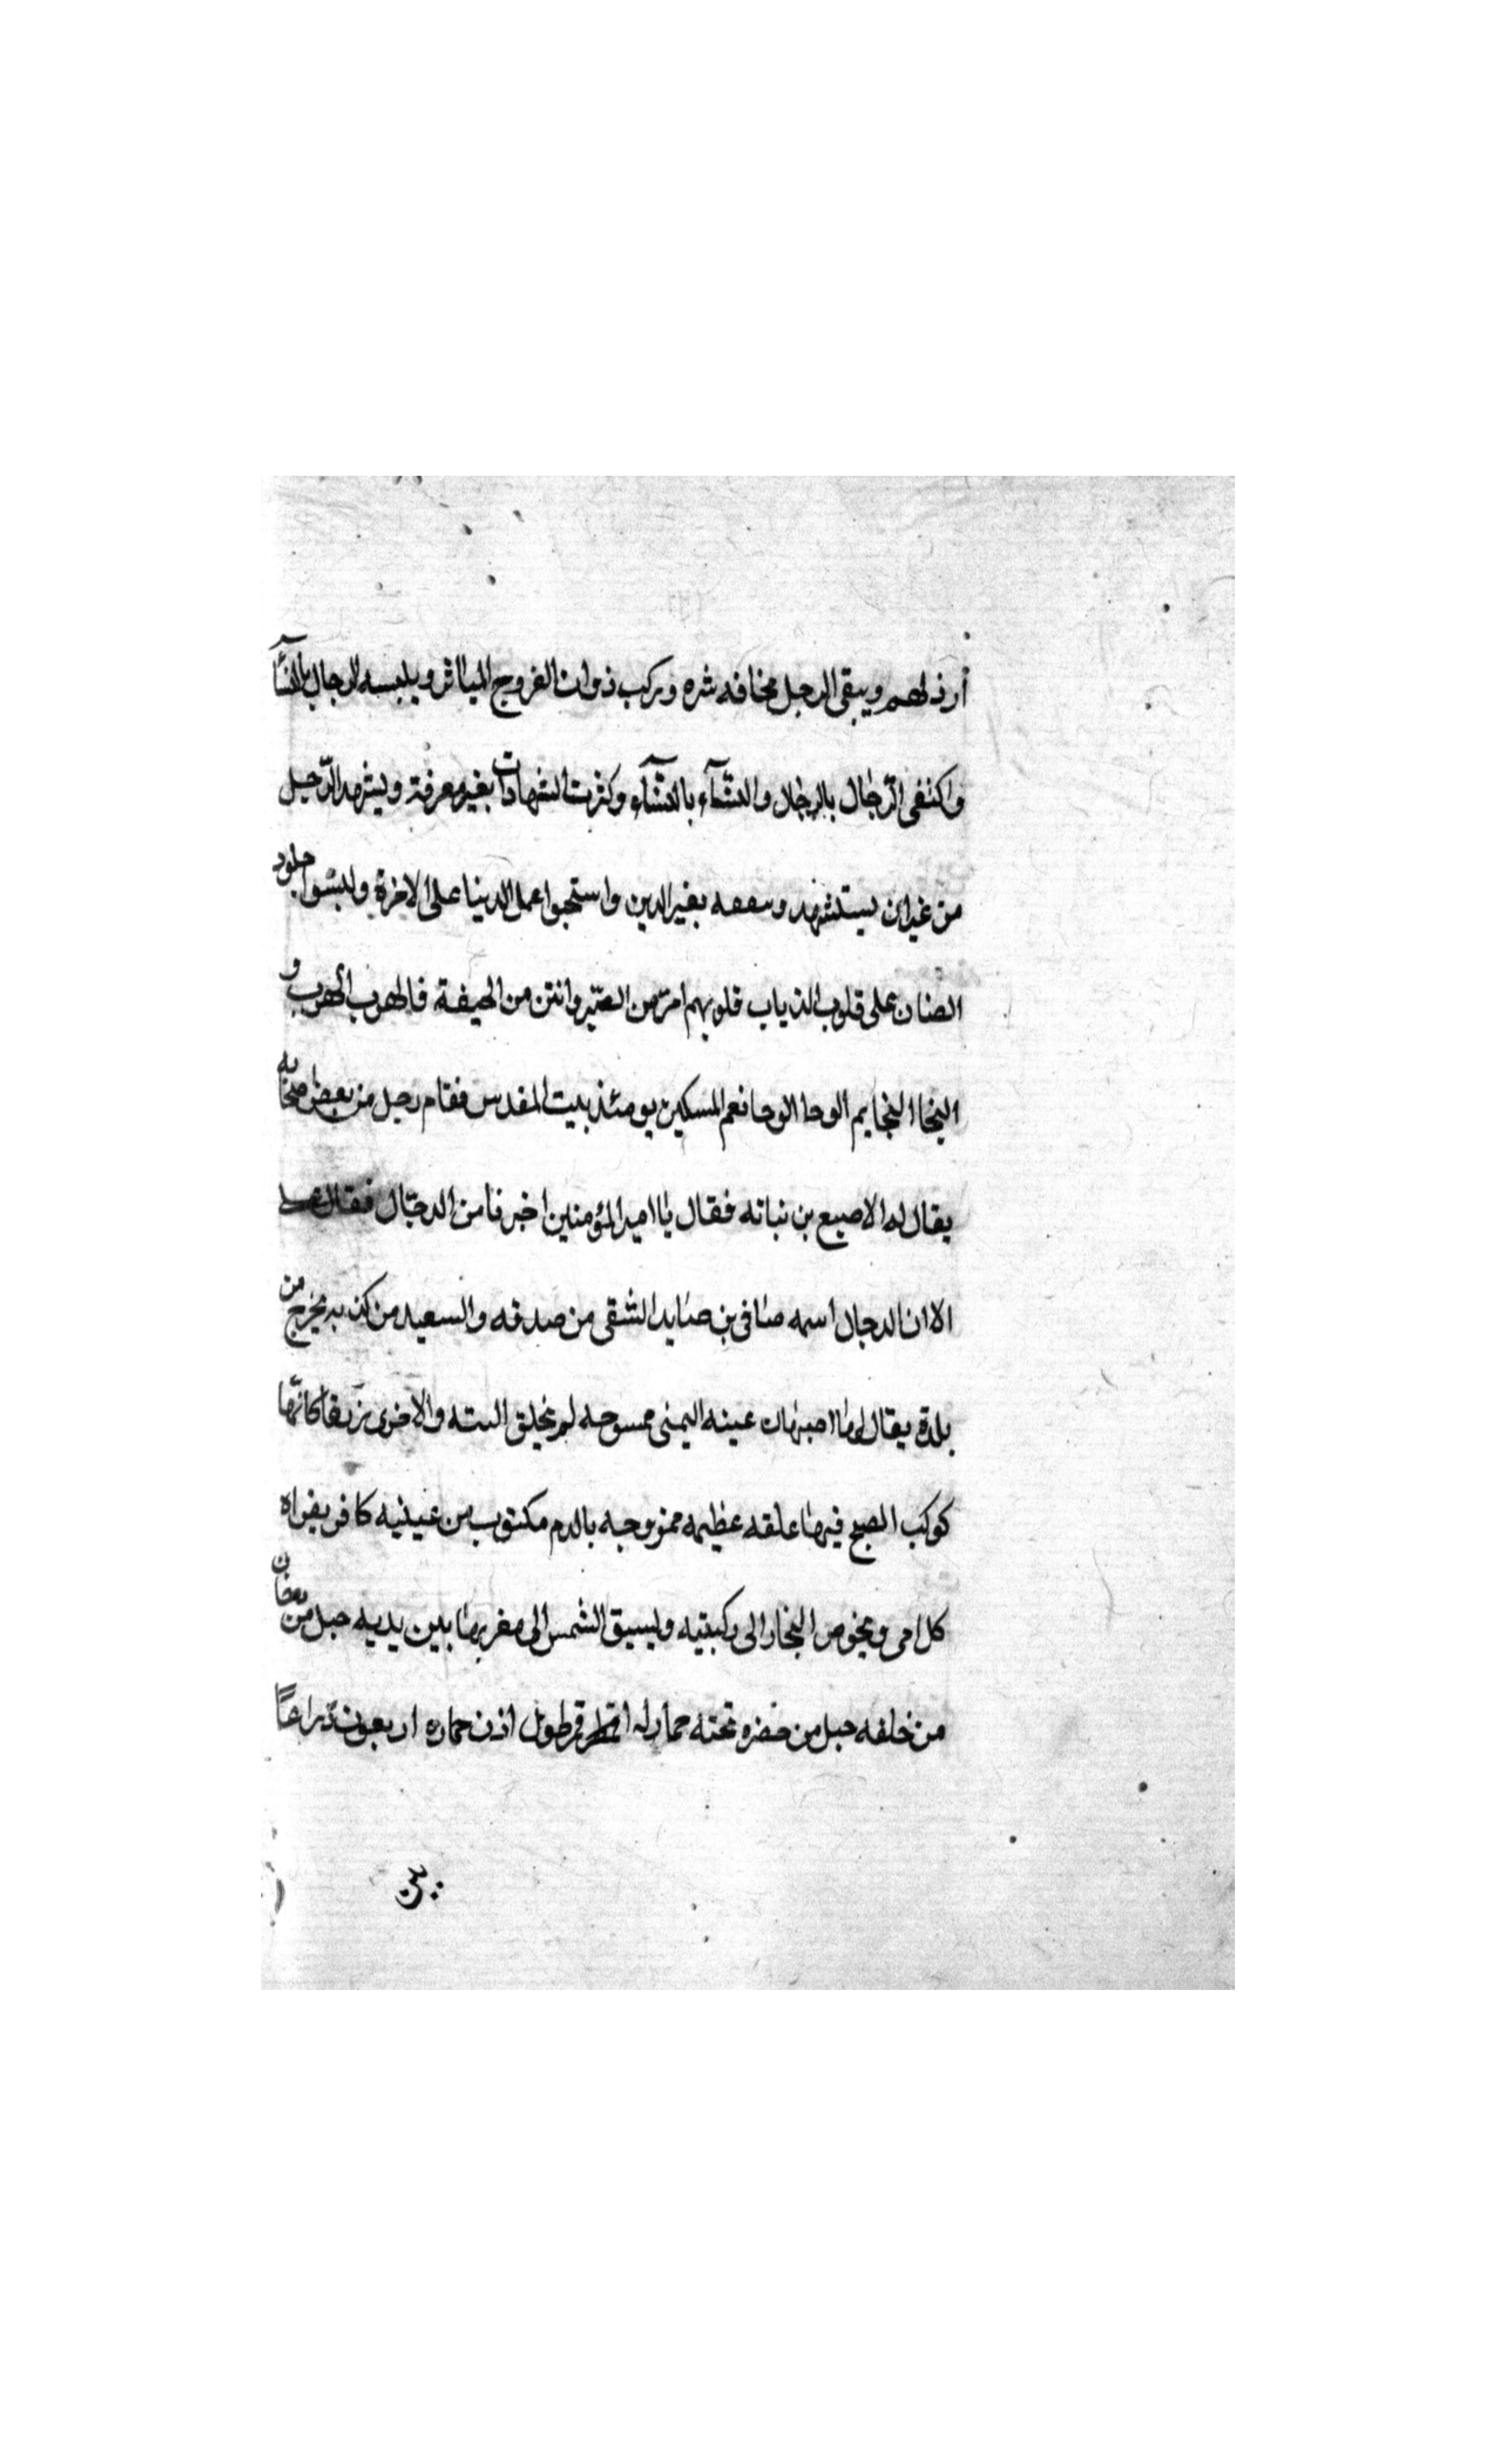 أرذلهم ويبقى الرجل مخافه شره وركب ذوات الفروج المياثر ويلبسه الرجال بالنسآ
واكتفى الرّجال بالرجال والنسّآء بالنسّآء وكثرت الشهادات بغير معرفة ويشهد الرّجل
من غير ان يستشهد بغير الدين واستحبوا عمل الدنيا على الاخرة ولبسوا جلود
الضان على قلوب الذياب قلوبهم امرّ من الصبر وانتن من الجيفة فالهرب الهرب و
النجا النجا ثم الوحا الوحا نعم المسكين يومئذ بيت المقدس فقام رجل من بعض اصحابه
يقال له الاصبع بن نباته فقال يا امير المؤمنين اخبرنا من الدجّال فقال
الا ان الدجال اسمه صافى بن صايد الشقى من صدقه والسعيد من كذبه يخرج من
بلدة يقال لها اصبهان عينه اليمنى ممسوحه لم يخلق البته والاخرى زرقا كانّها
كوكب الصبح فيها علقه عظيمه ممزوجه بالدم مكتوب بين عينيه كافر يقراه
كل امى ويخوض البخار الى ركبتيه ويسبق الشمس الى مغربها بين يديه جبل من دخان
من خلفه جبل من خضره تحته حمار له اقمر طول اذن حماره اربعون ذراعًا
٣٠